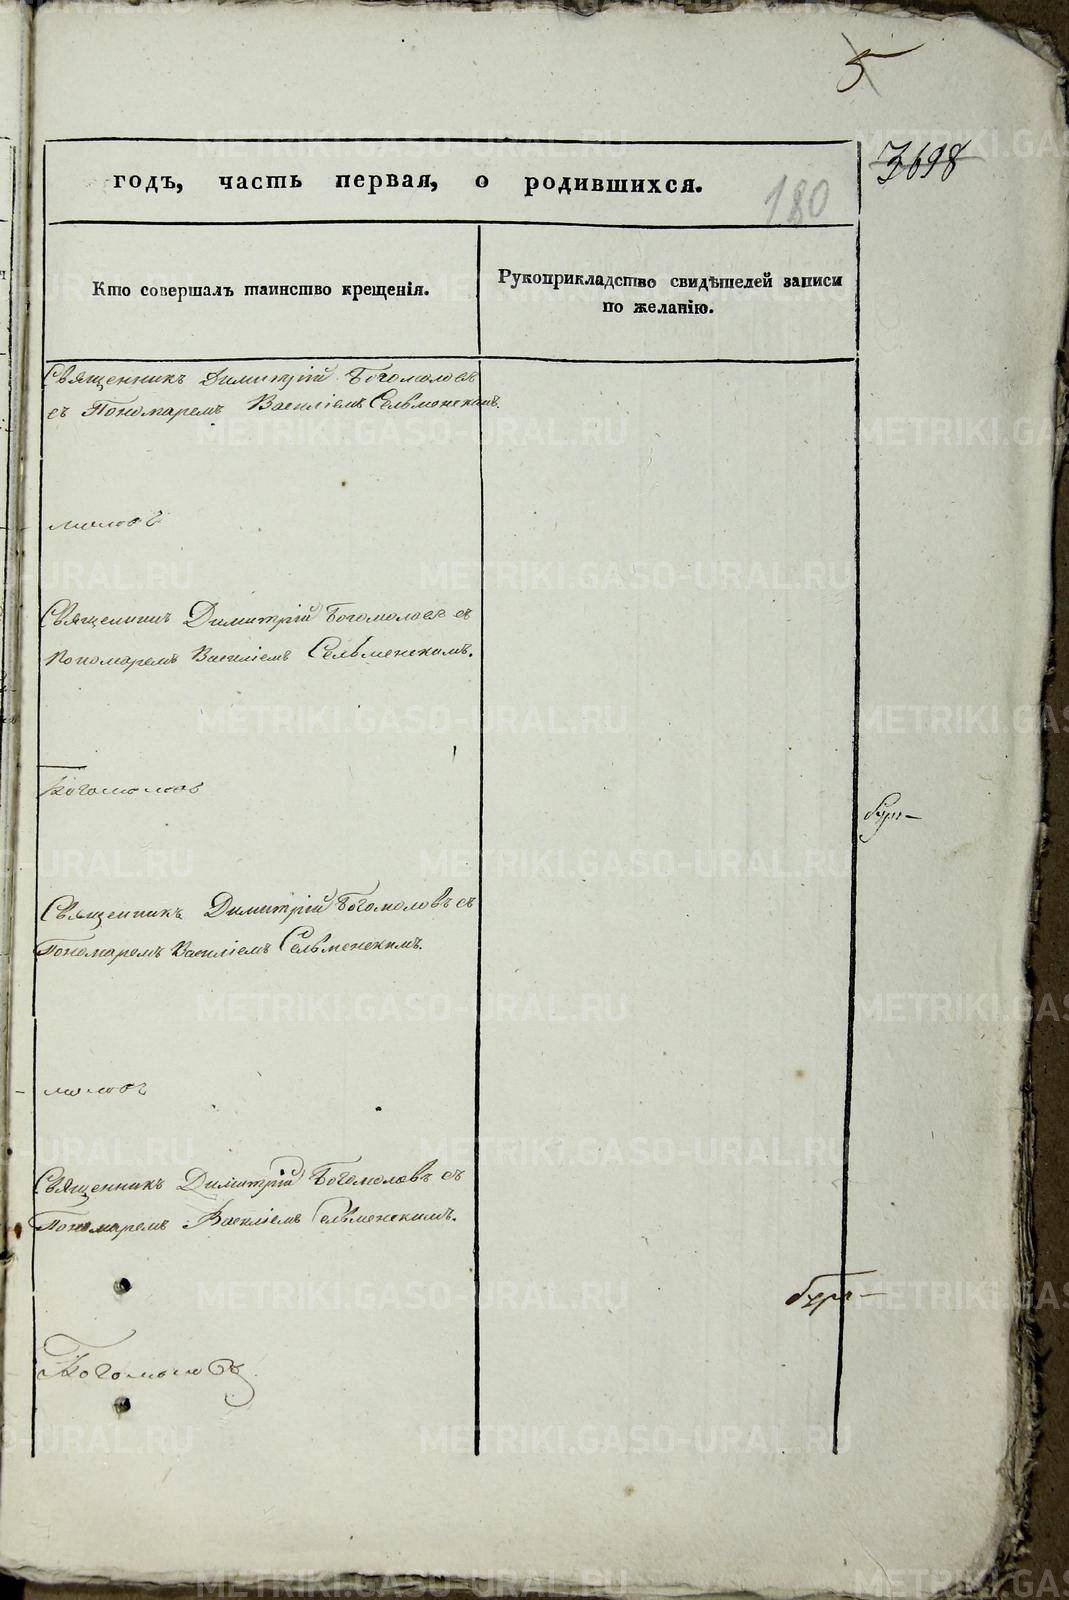 5
3698
годъ, часть первая, о родившихся.
180
Кто совершалъ таинство крещенія.
Рукоприкладство свидѣтелей записи
по желанію.
Священникъ Димитрій Богомоловъ
съ Пономаремъ Василіемъ Сельменскимъ.
моловъ
Священникъ Димитрій Богомоловъ съ
Пономаремъ Василіемъ Сельменскимъ.
Богомолов
Священникъ Димитрій Богомоловъ съ
Пономаремъ Василіемъ Сельменскимъ.
моловъ
Священникъ Димитрій Богомоловъ съ
Пономаремъ Василіемъ Сельменскимъ.
Богомоловъ
METRIKI.GASO-URAL.RU